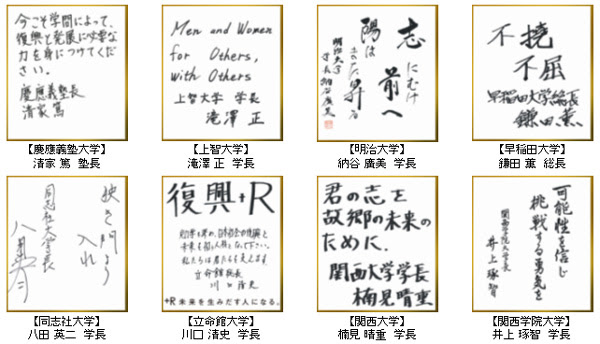 今こそ学問によって、
復興と発展に必要な
力を身につけてくだ
さい。
慶應義塾長
清家 篤
【慶應義塾大学】
清家 篤 塾長
Men and Women
for Others,
with Others
上智大学 学長
滝澤 正
【上智大学】
滝澤 正 学長
志
にむけ
前へ
陽は
また昇る
明治大学
学長 納谷廣美
【明治大学】
納谷 廣美 学長
不撓
不屈
早稲田大学総長
鎌田 薫
【早稲田大学】
鎌田 薫 総長
狭き門より
入れ
同志社大学長
八田英二
【同志社大学】
八田 英二 学長
復興+R
未来を担う人格となして下さい。
私たちは君たちを支えます
立命館総長
川口清史
+R 未来を生みだす人になる。
【立命館大学】
川口 清史 学長
君の志を
故郷の未来の
ために.
関西大学学長
楠見晴重
【関西大学】
楠見 晴重 学長
可能性を信じ
挑戦する勇気を
関西学院大学学長
井上琢智
【関西学院大学】
井上 琢智 学長